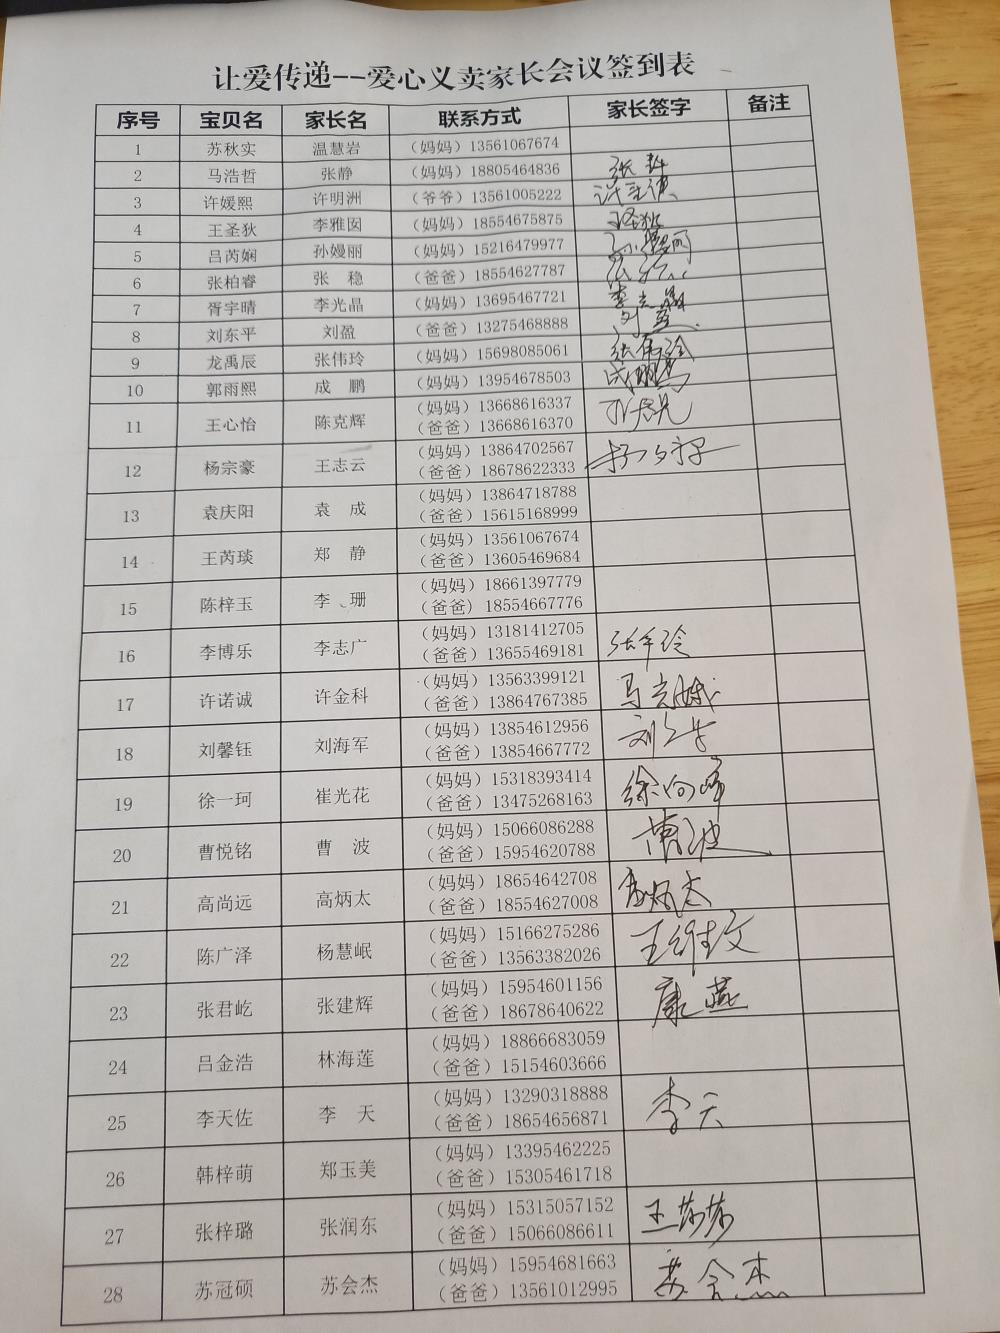 让爱传递--爱心义卖家长会议签到表
序号 宝贝名 家长名 联系方式 家长签字 备注
1 苏秋实 温慧岩 （妈妈）13561067674
2 马浩哲 张静 （妈妈）18805464836 张静
3 许媛熙 许明洲 （爷爷）13561005222
4 王圣狄 李雅囡 （妈妈）18554675875
5 吕芮娴 孙嫚丽 （妈妈）15216479977 孙嫚丽
6 张柏睿 张 稳 （爸爸）18554627787
7 胥宇晴 李光晶 （妈妈）13695467721 李光晶
8 刘东平 刘盈 （爸爸）13275468888 刘盈
9 龙禹辰 张伟玲 （妈妈）15698085061 张伟玲
10 郭雨熙 成 鹏 （妈妈）13954678503 成鹏
11 王心怡 陈克辉 （妈妈）13668616337
（爸爸）13668616370
12 杨宗豪 王志云 （妈妈）13864702567
（爸爸）18678622333
13 袁庆阳 袁 成 （妈妈）13864718788
（爸爸）15615168999
14 王芮琰 郑 静 （妈妈）13561067674
（爸爸）13605469684
15 陈梓玉 李 珊 （妈妈）18661397779
（爸爸）18554667776
16 李博乐 李志广 （妈妈）13181412705
（爸爸）13655469181
17 许诺诚 许金科 （妈妈）13563399121
（爸爸）13864767385
18 刘馨钰 刘海军 （妈妈）13854612956
（爸爸）13854667772
19 徐一珂 崔光花 （妈妈）15318393414 徐向峰
（爸爸）13475268163
20 曹悦铭 曹 波 （妈妈）15066086288 曹波
（爸爸）15954620788
21 高尚远 高炳太 （妈妈）18654642708 高炳太
（爸爸）18554627008
22 陈广泽 杨慧岷 （妈妈）15166275286 王维文
（爸爸）13563382026
23 张君屹 张建辉 （妈妈）15954601156 康燕
（爸爸）18678640622
24 吕金浩 林海莲 （妈妈）18866683059
（爸爸）15154603666
25 李天佐 李 天 （妈妈）13290318888 李天
（爸爸）18654656871
26 韩梓萌 郑玉美 （妈妈）13395462225
（爸爸）15305461718
27 张梓璐 张润东 （妈妈）15315057152 王莎莎
（爸爸）15066086611
28 苏冠硕 苏会杰 （妈妈）15954681663 苏会杰
（爸爸）13561012995